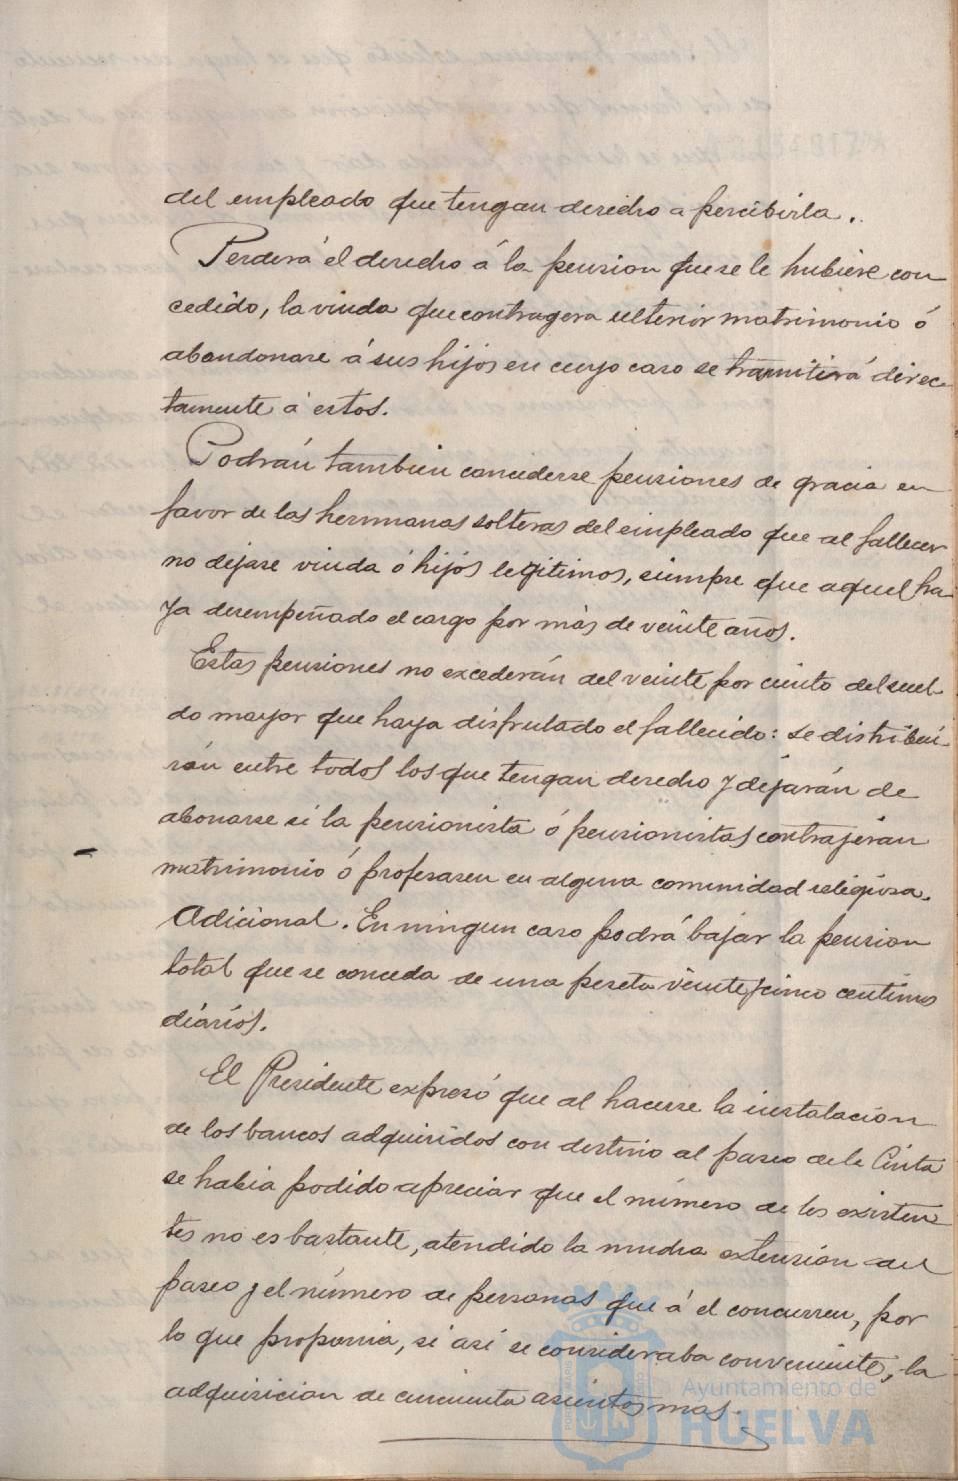 del empleado que tengan derecho a percibirla.
Perderá el derecho á la pension que se le hubiere con
cedido, la viuda que contragera ulterior matrimonio ó
abandonare á sus hijos en cuyo caso se tramitirá direc
tamente á estos.
Podrán tambien concederse pensiones de gracia en
favor de las hermanas solteras del empleado que al fallecer
no dejase viuda ó hijos legitimos, siempre que aquel ha-
ya desempeñado el cargo por más de veinte años.
Estas pensiones no excederán del veinte por ciento del suel-
do mayor que haya disfrutado el fallecido: se distribui-
rán entre todos los que tengan derecho y dejarán de
abonarse si la pensionista ó pensionistas contrajeran
matrimonio ó profesasen en alguna comunidad religiosa.
Adicional. En ningun caso podrá bajar la pension
total que se conceda de una peseta veinte y cinco centimos
diários.
El Presidente expresó que al hacerse la instalación
de los bancos adquiridos con destino al paseo de la Cinta
se habia podido apreciar que el número de los existen
tes no es bastante, atendido la mucha extensión del
paseo y el número de personas que á el concurren, por
lo que proponia, si asi se consideraba conveniente, la
adquisicion de cincuenta asientos mas.
Ayuntamiento de
HUELVA